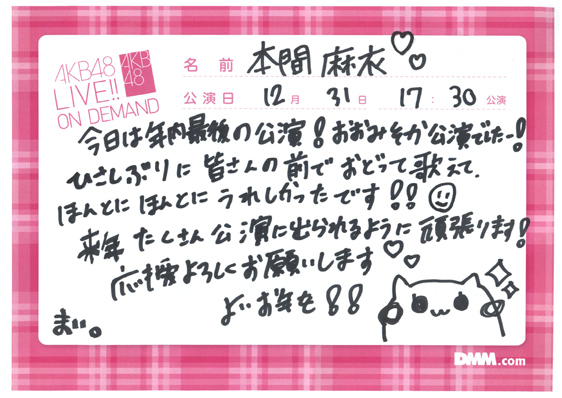 AKB48
LIVE!!
ON DEMAND
AKB
48
名前 本間 麻衣
公演日 12月 31日 17:30 公演
今日は年内最後の公演!おおみそか公演でしたー!
ひさしぶりに皆さんの前でおどって歌えて、
ほんとにほんとにうれしかったです!!
来年たくさん公演に出られるように頑張ります!
応援よろしくお願いします
よいお年を!!
まい。
DMM.com